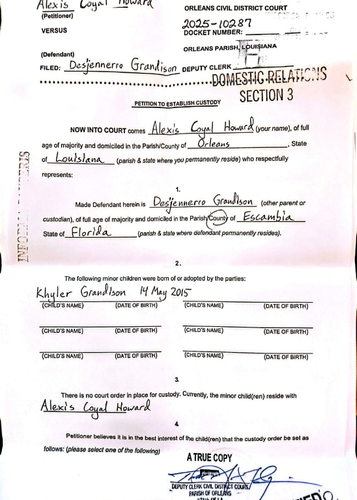 Alexis Coyal Howard
(Petitioner)
ORLEANS CIVIL DISTRICT COURT
VERSUS
2025-10287
DOCKET NUMBER:
ORLEANS PARISH, LOUISIANA
(Defendant)
FILED: Desjennerro Grandison DEPUTY CLERK
DOMESTIC RELATIONS
SECTION 3
PETITION TO ESTABLISH CUSTODY
NOW INTO COURT comes Alexis Coyal Howard (your name), of full
age of majority and domiciled in the Parish/County of Orleans, State
of Louisiana (parish & state where you permanently reside) who respectfully
represents:
1.
Made Defendant herein is Desjennerro Grandison (other parent or
custodian), of full age of majority and domiciled in the Parish/County of Escambia
State of Florida (parish & state where defendant permanently resides).
2.
The following minor children were born of or adopted by the parties:
Khyler Grandison 14 May 2015
(CHILD'S NAME) (DATE OF BIRTH) (CHILD'S NAME) (DATE OF BIRTH)
(CHILD'S NAME) (DATE OF BIRTH) (CHILD'S NAME) (DATE OF BIRTH)
(CHILD'S NAME) (DATE OF BIRTH) (CHILD'S NAME) (DATE OF BIRTH)
3.
There is no court order in place for custody. Currently, the minor child(ren) reside with
Alexis Coyal Howard
4.
Petitioner believes it is in the best interest of the child(ren) that the custody order be set as
follows: (please select one of the following)
A TRUE COPY
DEPUTY CLERK CIVIL DISTRICT COURT
PARISH OF ORLEANS